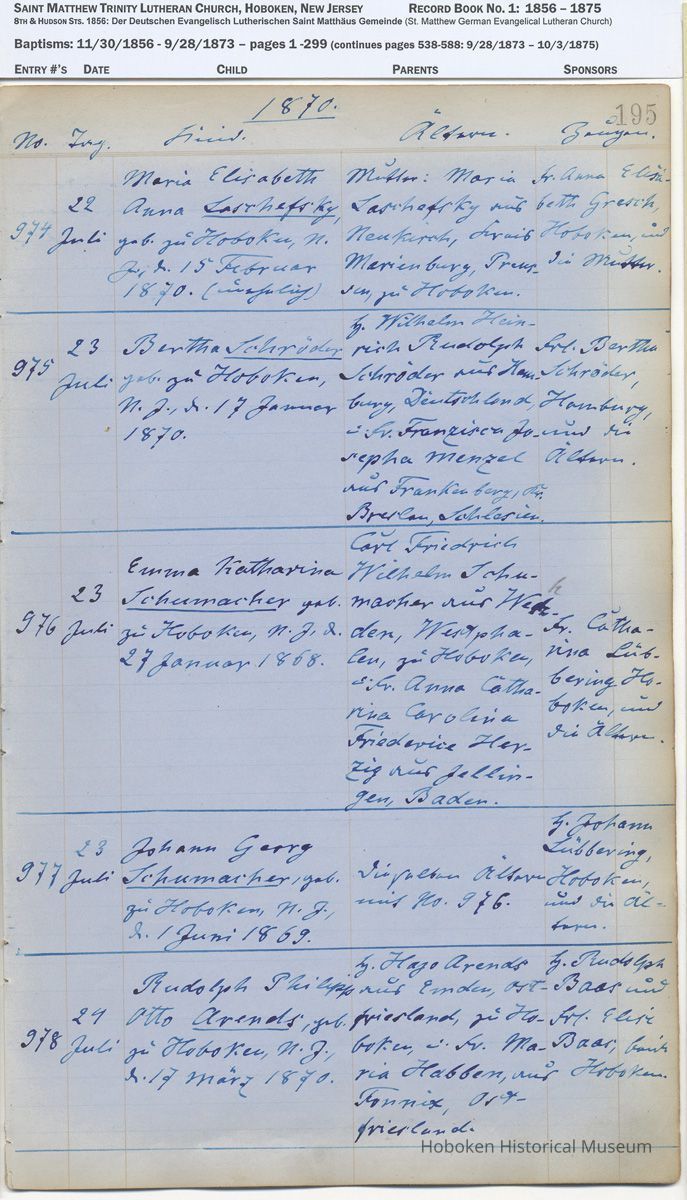 SAINT MATTHEW TRINITY LUTHERAN CHURCH, HOBOKEN, NEW JERSEY RECORD BOOK NO. 1: 1856 – 1875
8TH & HUDSON STS. 1856: Der Deutschen Evangelisch Lutherischen Saint Matthäus Gemeinde (St. Matthew German Evangelical Lutheran Church)
Baptisms: 11/30/1856 - 9/28/1873 – pages 1 -299 (continues pages 538-588: 9/28/1873 – 10/3/1875)
ENTRY #'S DATE CHILD PARENTS SPONSORS
1870. 195
No. Tag. Kind. Ältern. Zeugen.
974
22
Juli
Maria Elisabeth
Anna Laschefsky,
geb. zu Hoboken, N.
J., d. 15 Februar
1870. (unehelich)
Mutter: Maria
Laschefsky aus
Neukirch, Kreis
Marienburg, Preus-
sen, zu Hoboken.
Fr. Anna Elisa-
beth Gresch,
Hoboken, und
die Mutter.
975
23
Juli
Bertha Schröder
geb. zu Hoboken,
N. J., d. 17 Januar
1870.
H. Wilhelm Hein-
rich Rudolph
Schröder aus Ham-
burg, Deutschland,
u. Fr. Franzisca Jo-
sepha Menzel
aus Frankenberg, Kr.
Breslau, Schlesien.
Frl. Bertha
Schröder,
Hamburg,
und die
Ältern.
976
23
Juli
Emma Katharina
Schumacher geb.
zu Hoboken, N. J., d.
27 Januar 1868.
Carl Friedrich
Wilhelm Schu-
macher aus
den, Westpha-
len, zu Hoboken,
u. Fr. Anna Catha-
rina Carolina
Friederice Her-
zig aus Jellin-
gen, Baden.
Fr. Catha-
rina Lüb-
bering Ho-
boken, und
die Ältern.
977
23
Juli
Johann Georg
Schumacher, geb.
zu Hoboken, N. J.,
d. 1 Juni 1869.
Dieselben Ältern
mit No. 976.
H. Johann
Lübbering,
Hoboken,
und die Äl-
tern.
978
24
Juli
Rudolph Philipp
Otto Arends, geb.
zu Hoboken, N. J.,
d. 17 März 1870.
H. Hajo Arends
aus Emden, Ost-
friesland, zu Ho-
boken, u. Fr. Ma-
ria Habben, aus
Fonnix, Ost-
friesland.
H. Rudolph
Baas und
Frl. Elise
Baas, beide
Hoboken.
Hoboken Historical Museum